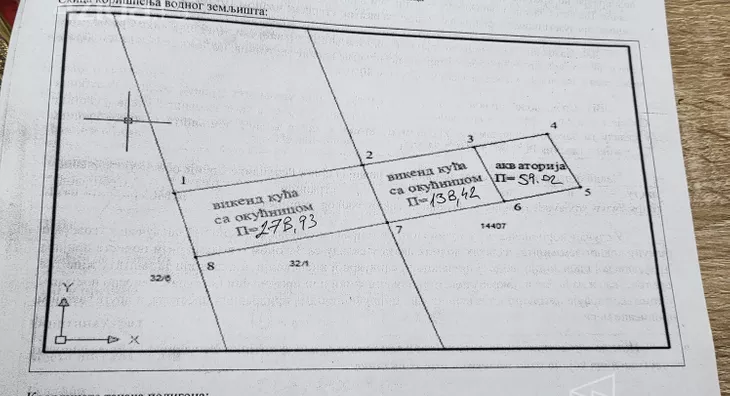 Скица коришћења водног земљишта:
1
2
3
4
5
6
7
8
викенд кућа
са окућницом
П=278,93
викенд кућа
са окућницом
П=138,42
акваторија
П=59.02
14407
32/6
32/1
Y
X
Координате тачака полигона: